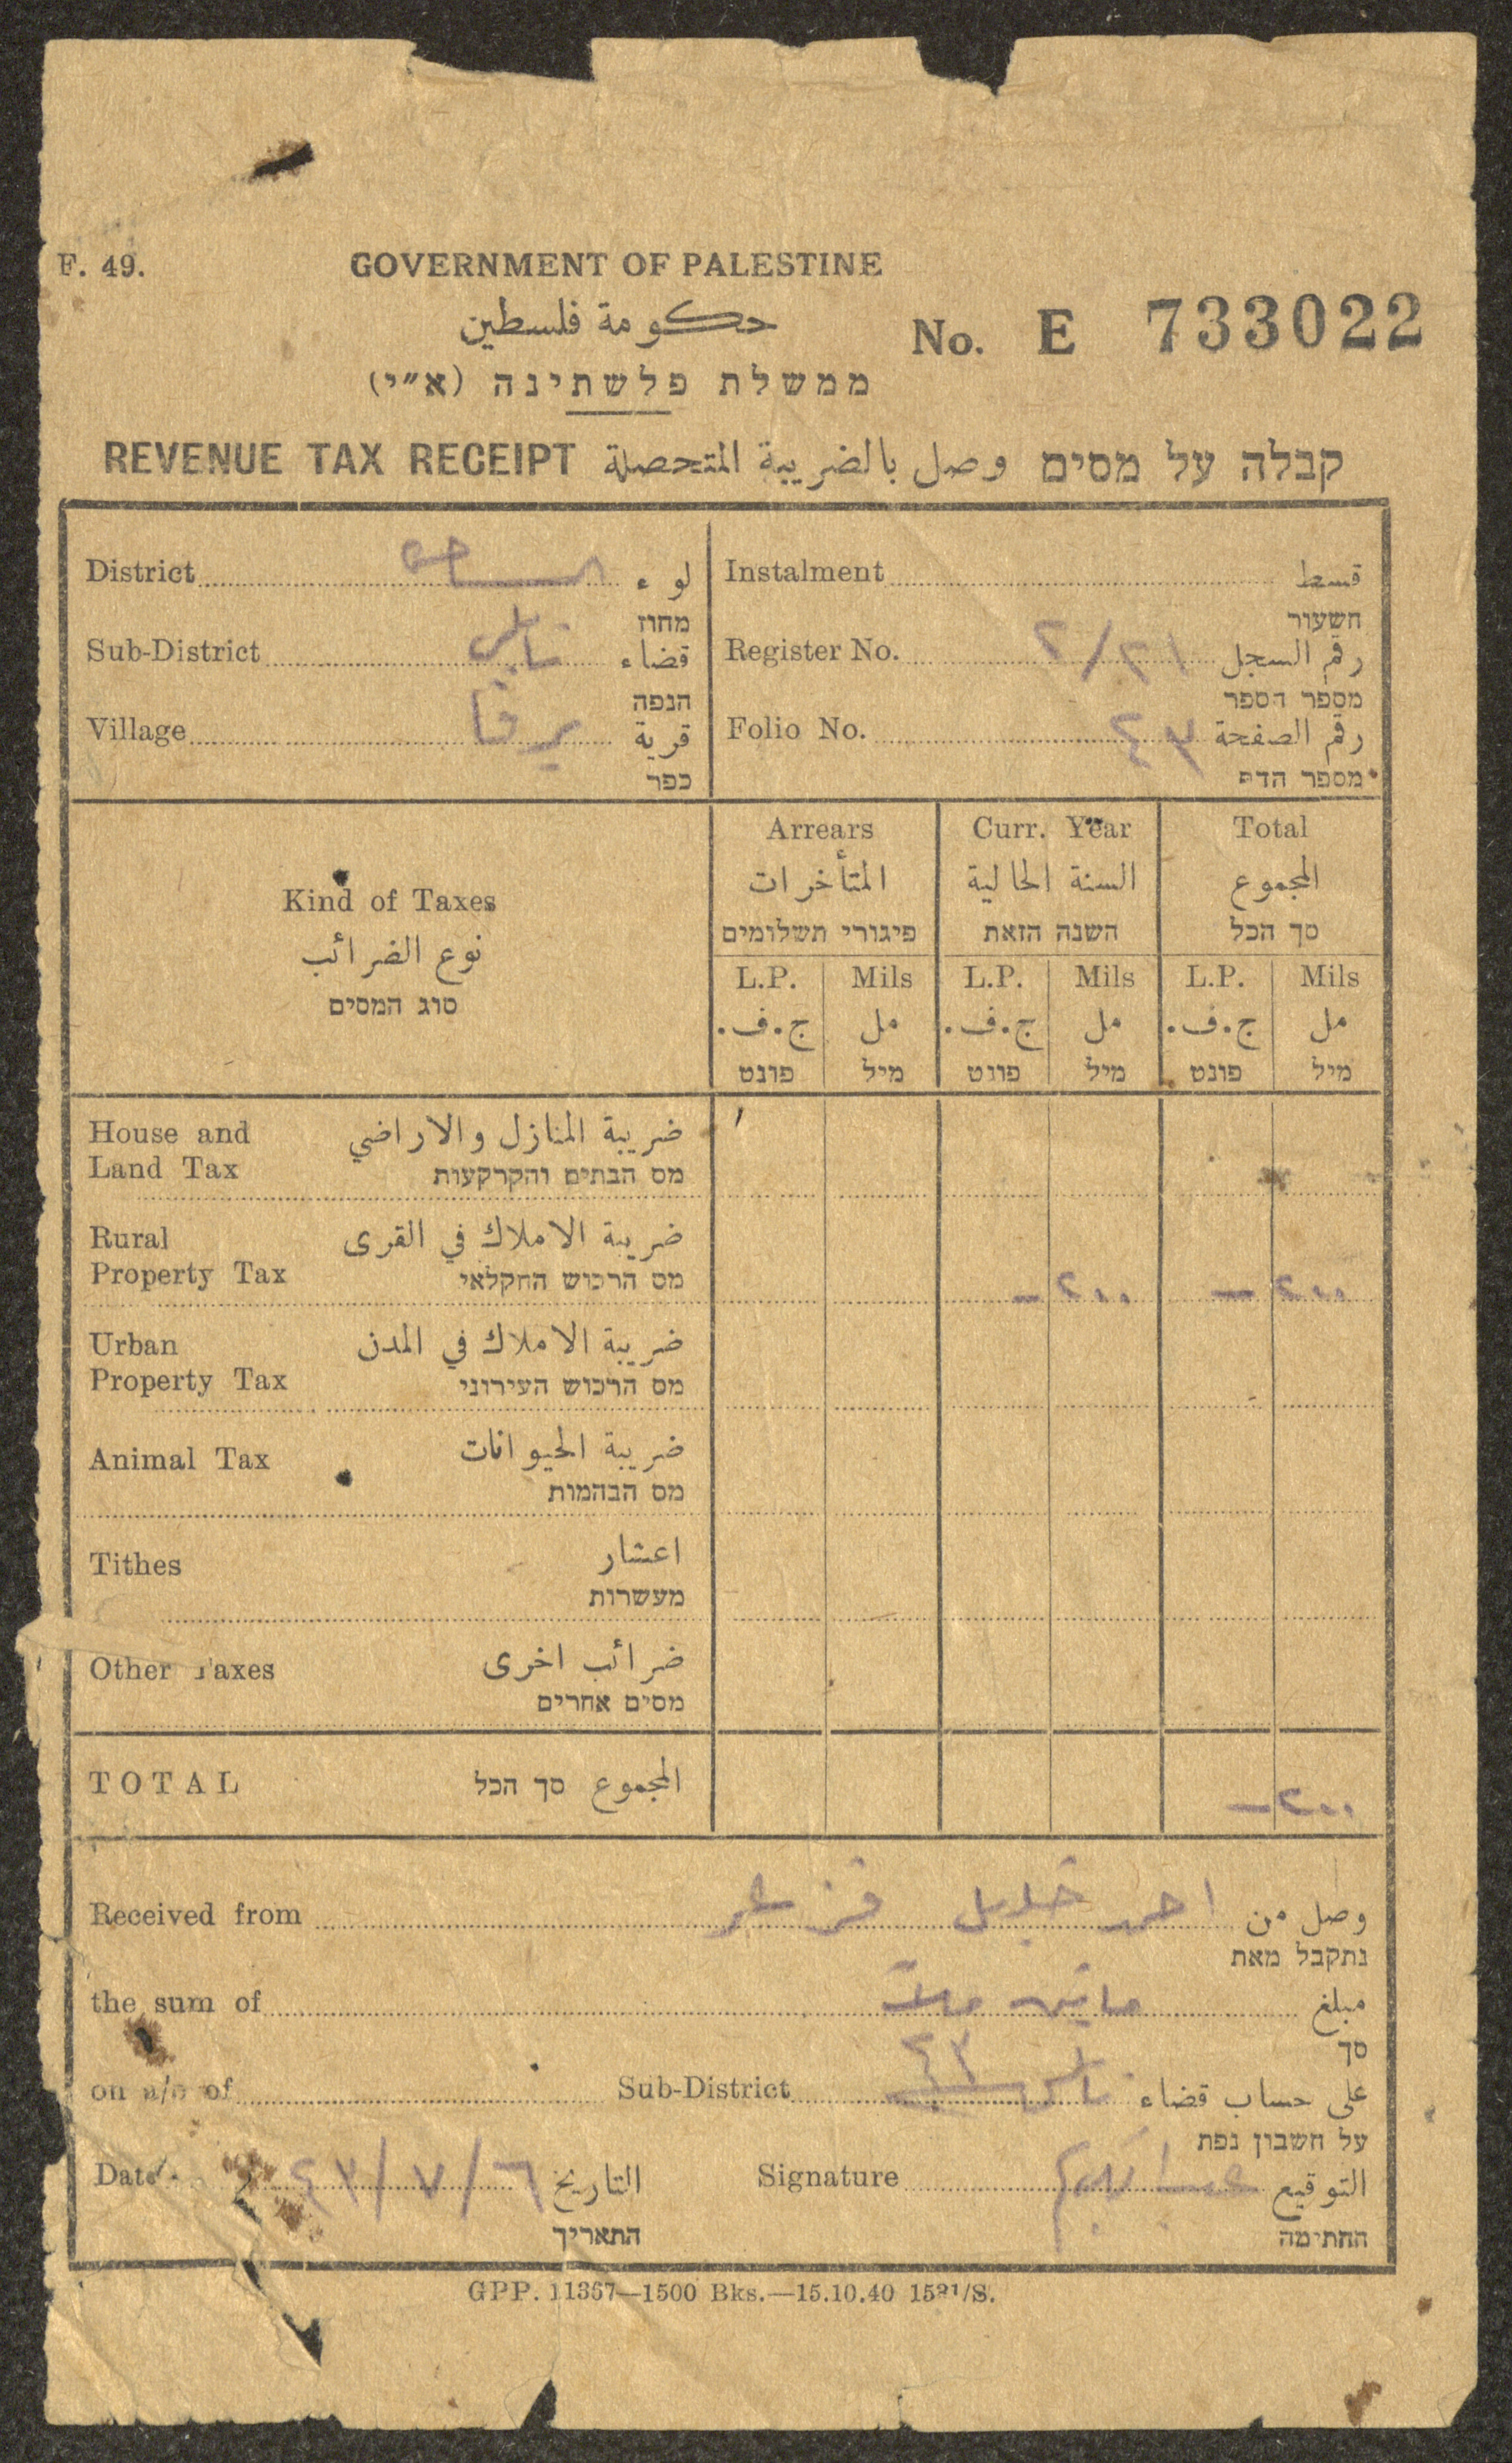 F. 49.
GOVERNMENT OF PALESTINE
حكومة فلسطين
No. E 733022
ממשלת פלשתינה (א״י)
REVENUE TAX RECEIPT وصل بالضريبة المتحصلة קבלה על מסים
District لواء
מחוז
Sub-District نابلس قضاء
הנפה
Village برقا قرية
כפר
Instalment قسط
השעור
Register No. ٢/٢١ رقم السجل
מספר הספר
Folio No. ٤٣ رقم الصفحة
מספר הדף
Kind of Taxes
نوع الضرائب
סוג המסים
Arrears Curr. Year Total
المتأخرات السنة الحالية المجموع
פיגורי תשלומים השנה הזאת סך הכל
L.P. Mils L.P. Mils L.P. Mils
ج.ف. مل ج.ف. مل ج.ف. مل
פונט מיל פונט מיל פונט מיל
House and ضريبة المنازل والاراضي
Land Tax מס הבתים והקרקעות
Rural ضريبة الاملاك في القرى
Property Tax מס הרכוש החקלאי — ٢٠٠ — ٢٠٠
Urban ضريبة الاملاك في المدن
Property Tax מס הרכוש העירוני
Animal Tax ضريبة الحيوانات
מס הבהמות
Tithes اعشار
מעשרות
Other Taxes ضرائب اخرى
מסים אחרים
TOTAL المجموع סך הכל — ٢٠٠
Received from احمد خليل وصل من
נתקבל מאת
the sum of مائتين مبلغ
סך
on a/c of Sub-District نابلس ٤٣ على حساب قضاء
על חשבון נפת
Date ٦/٧/٤٣ التاريخ Signature التوقيع
התאריך החתימה
GPP. 11367—1500 Bks.—15.10.40 1521/S.